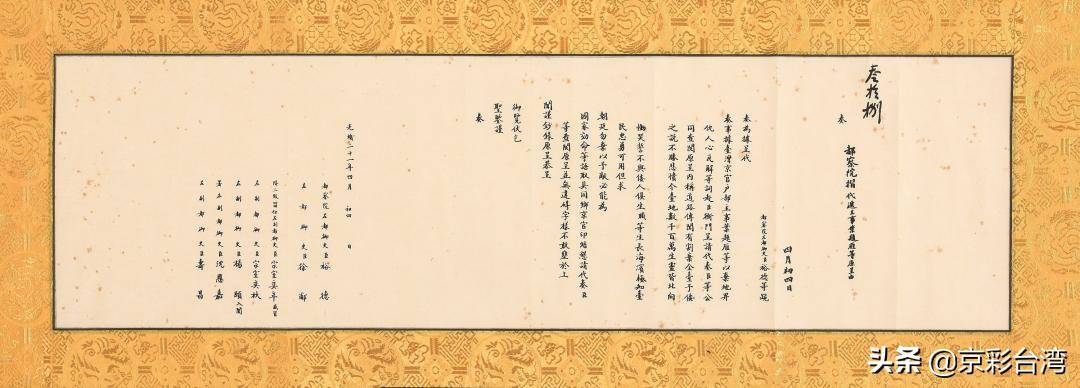 叁拾捌
奏
都察院摺 代遞主事葉題雁等原呈由
四月初四日
都察院左都御史臣裕德等跪
奏為據呈代
奏事據臺灣京官户部主事葉題雁等以棄地畀
仇人心瓦解等詞赴臣衙門呈請代奏臣等公
同查閱原呈內稱道路傳聞有割棄全臺予倭
之說不勝悲憤今臺地數千百萬生靈皆北向
慟哭誓不與倭人俱生職等生長海濱極知臺
民忠勇可用但求
朝廷勿棄以予敵必能為
國家効命等語取具同鄉京官印結懇請代奏臣
等查閱原呈並無違碍字樣不敢壅於上
聞謹鈔錄原呈恭呈
御覽伏乞
聖鑒謹
奏
光緒二十一年四月 初四 日
都察院左都御史臣裕 德
左都御史臣徐 郙
左副都御史臣宗室奕年
左副都御史臣宗室奕杕
左副都御史臣楊 頤入闈
署左副都御史臣沈恩嘉
左副都御史臣壽 昌
头条 @京彩台湾